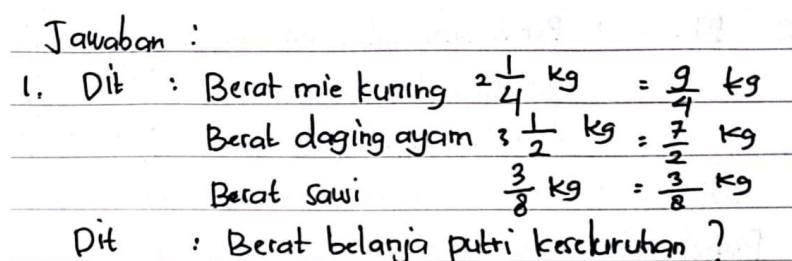 Jawaban :
1. Dit : Berat mie kuning 2 1/4 kg = 9/4 kg
Berat daging ayam 3 1/2 kg = 7/2 kg
Berat sawi 3/8 kg = 3/8 kg
Dit : Berat belanja putri keseluruhan ?